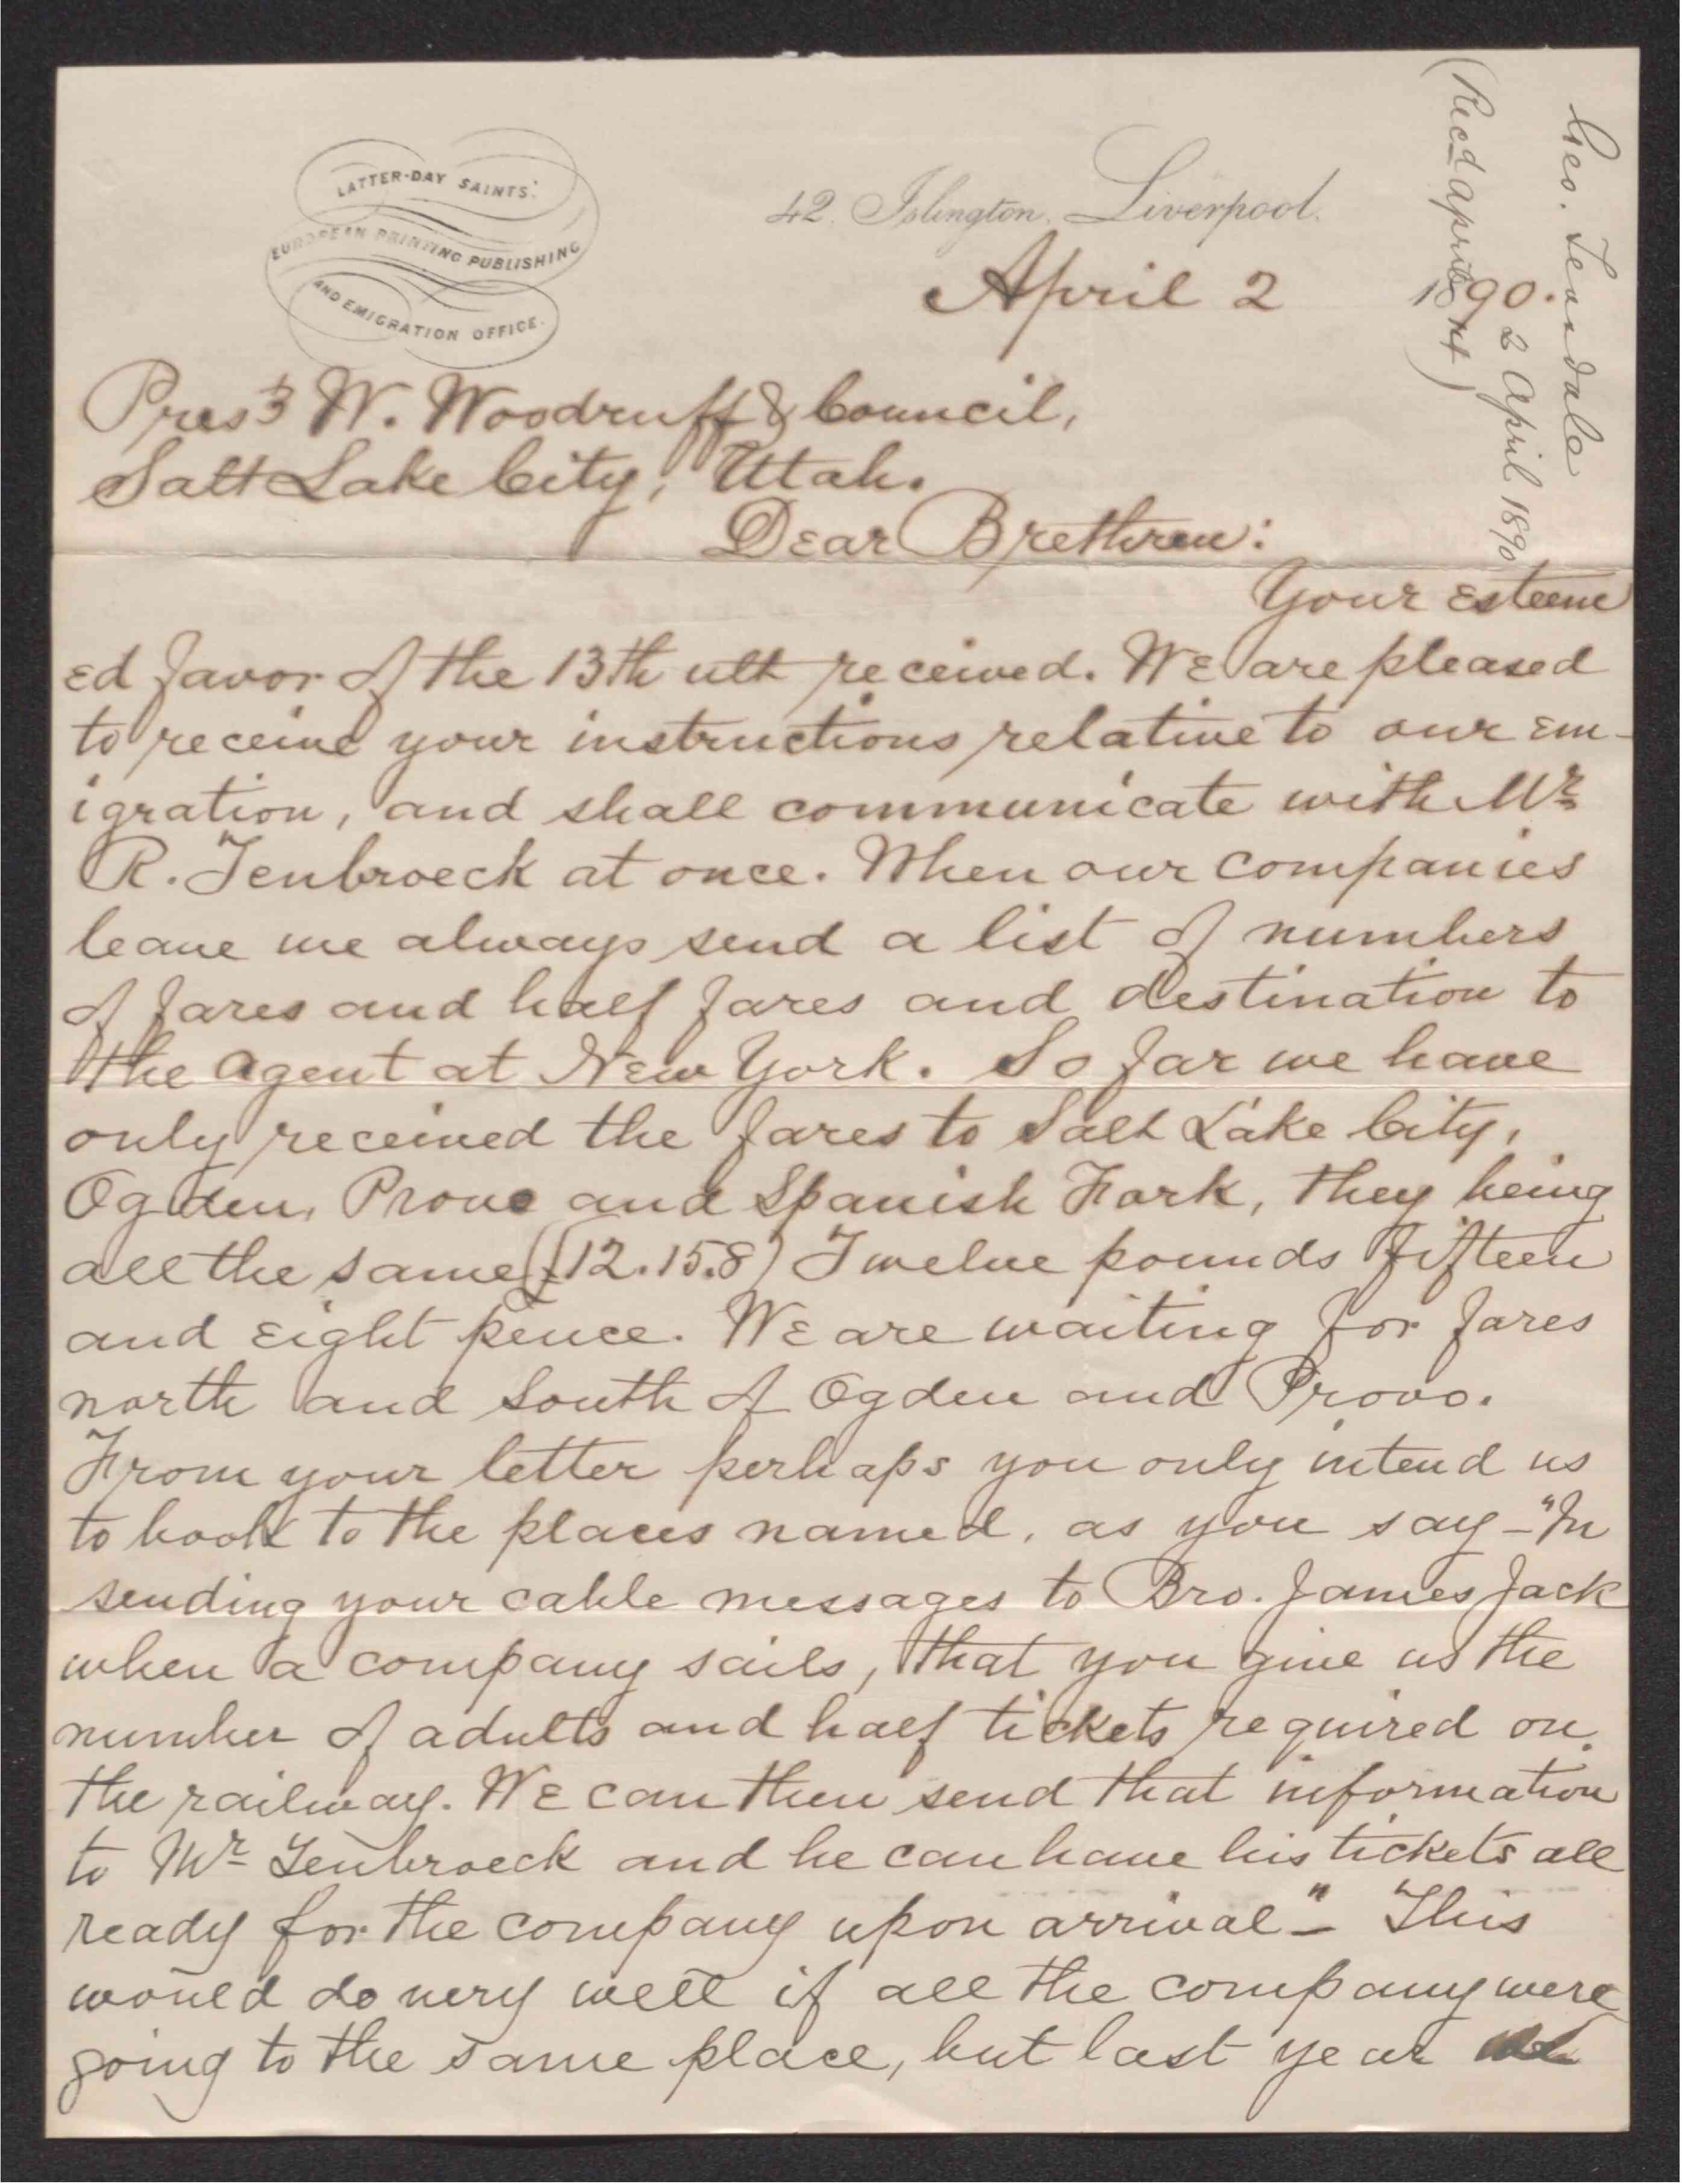 LATTER-DAY SAINTS'
EUROPEAN PRINTING PUBLISHING
AND EMIGRATION OFFICE.
42, Islington, Liverpool.
April 2 1890.
Geo. Teasdale
2 April 1890
(Recd April 14)
Prest W. Woodruff & Council,
Salt Lake City, Utah.
Dear Brethren:
Your esteem
ed favor of the 13th ult received. We are pleased
to receive your instructions relative to our em-
igration, and shall communicate with Mr
R. Tenbroeck at once. When our companies
leave we always send a list of numbers
of fares and half fares and destination to
the agent at New York. So far we have
only received the fares to Salt Lake City,
Ogden, Provo and Spanish Fork, they being
all the same (£12.15.8) Twelve pounds fifteen
and eight pence. We are waiting for fares
north and south of Ogden and Provo.
From your letter perhaps you only intend us
to book to the places named, as you say – "In
sending your cable messages to Bro. James Jack
when a company sails, that you give us the
number of adults and half tickets required on
the railway. We can then send that information
to Mr Tenbroeck and he can have his tickets all
ready for the company upon arrival" – This
would do very well if all the company were
going to the same place, but last year